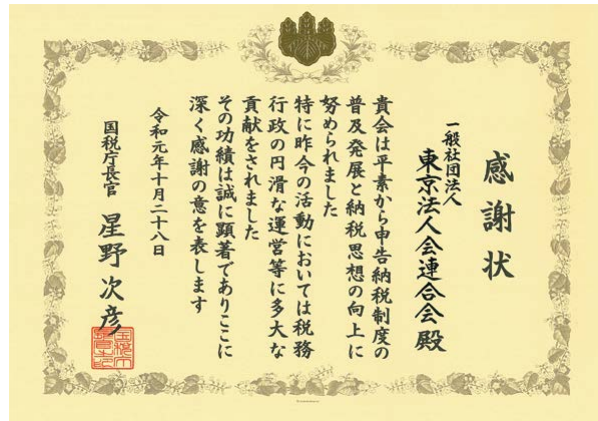 感謝状
一般社団法人
東京法人会連合会殿
貴会は平素から申告納税制度の
普及発展と納税思想の向上に
努められました
特に昨今の活動においては税務
行政の円滑な運営等に多大な
貢献をされました
その功績は誠に顕著でありここに
深く感謝の意を表します
令和元年十月二十八日
国税庁長官 星野次彦